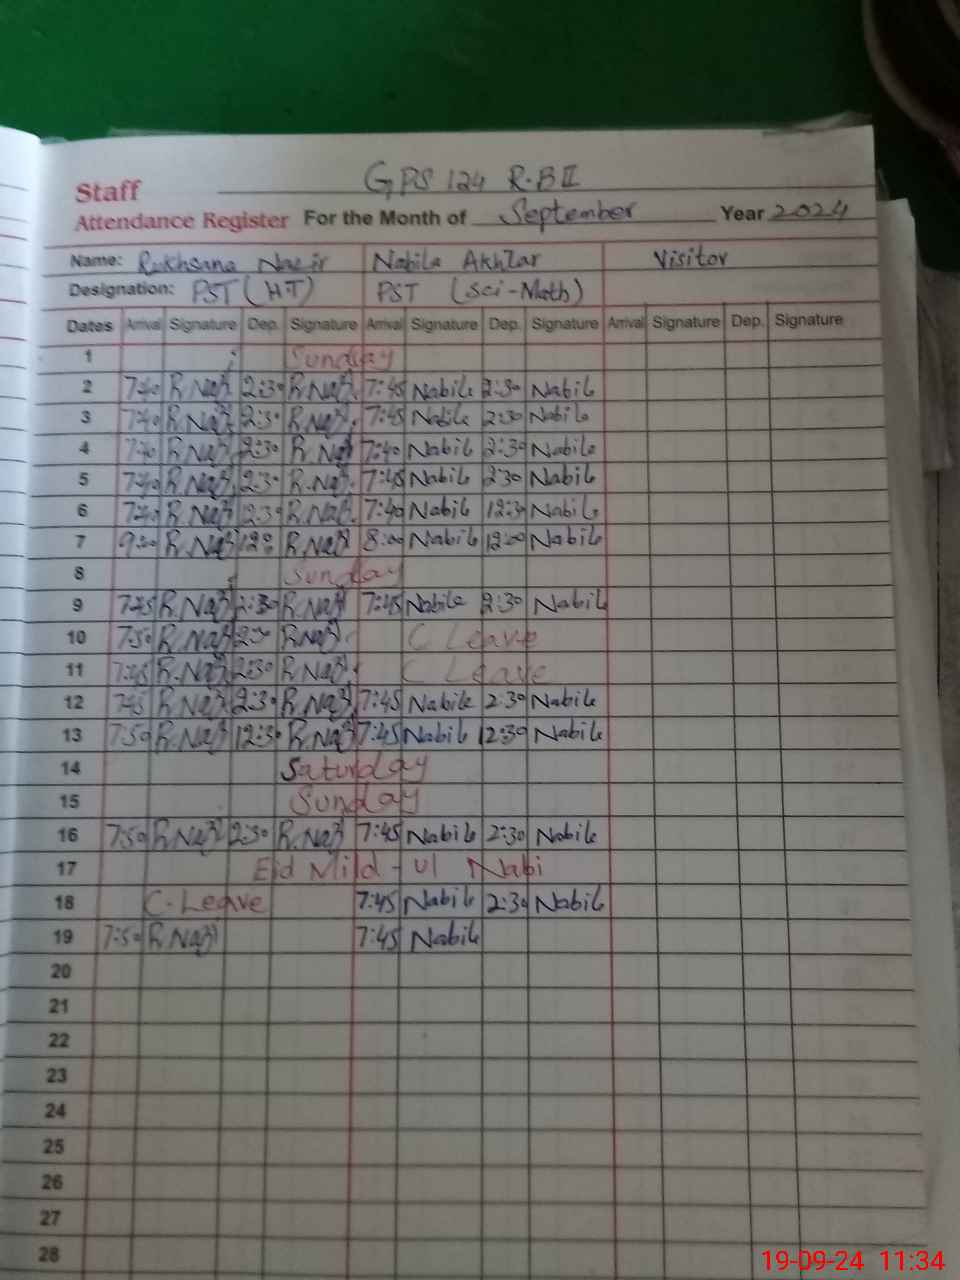 GPS 124 R.B II
Staff
Attendance Register For the Month of September Year 2024
Name: Rukhsana Nazir Nabila Akhtar Visitor
Designation: PST (H.T) PST (Sci-Math)
Dates Arrival Signature Dep. Signature Arrival Signature Dep. Signature Arrival Signature Dep. Signature
1 Sunday
2 7:40 R.Naz 2:30 R.Naz 7:45 Nabila 2:30 Nabila
3 7:40 R.Naz 2:30 R.Naz 7:45 Nabila 2:30 Nabila
4 7:40 R.Naz 2:30 R.Naz 7:40 Nabila 2:30 Nabila
5 7:40 R.Naz 2:30 R.Naz 7:45 Nabila 2:30 Nabila
6 7:40 R.Naz 12:30 R.Naz 7:40 Nabila 12:30 Nabila
7 R.Naz 12:00 R.Naz 8:00 Nabila 12:00 Nabila
8 Sunday
9 7:45 R.Naz 2:30 R.Naz 7:45 Nabila 2:30 Nabila
10 7:50 R.Naz 2:30 R.Naz C Leave
11 7:45 R.Naz 2:30 R.Naz C Leave
12 7:45 R.Naz 2:30 R.Naz 7:45 Nabila 2:30 Nabila
13 7:50 R.Naz 12:30 R.Naz 7:45 Nabila 12:30 Nabila
14 Saturday
15 Sunday
16 7:50 R.Naz 2:30 R.Naz 7:45 Nabila 2:30 Nabila
17 Eid Mild-ul Nabi
18 C-Leave 7:45 Nabila 2:30 Nabila
19 7:50 R.Naz 7:45 Nabila
20
21
22
23
24
25
26
27
28
19-09-24 11:34